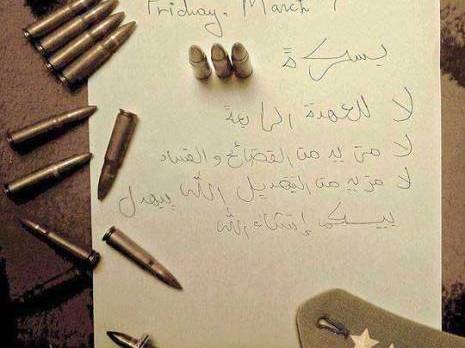 Friday, March
بسكرة
لا للعهدة الرابعة
لا مزيد من الفضائح و الفساد
لا مزيد من الله يبهدل
بيكم إنشاء الله